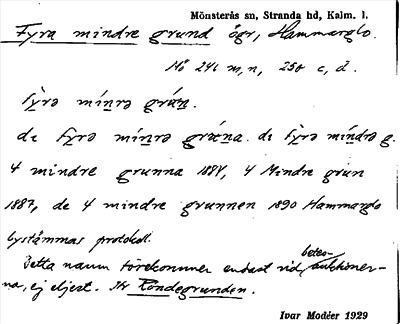 Mönsterås sn, Stranda hd, Kalm. l.
Fyra mindre grund ögr, Hammarglo.
Hö 246 m, n, 250 c, d.
fỳrə mínrə grún.
di fỳrə mínrə grúna. di fỳrə míndrə g.
4 mindre grunna 1884, 4 Mindre grun
1887, de 4 mindre grunnen 1890 Hammarglo
bystämmas protokoll.
Detta namn förekommer endast vid betes-
auktioner-
na, ej eljest. Jfr Rondegrunden.
Ivar Modéer 1929